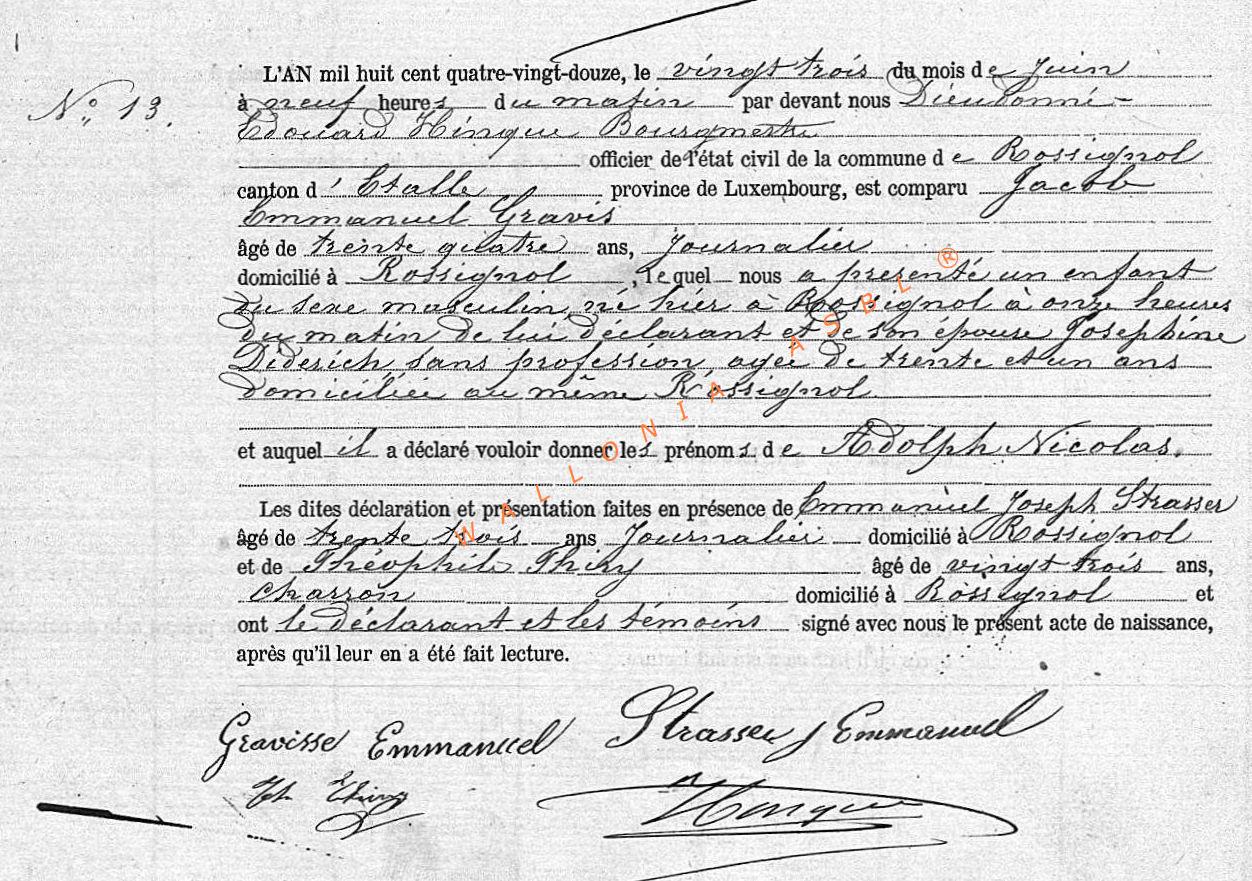 L'AN mil huit cent quatre-vingt-douze, le vingt trois du mois de Juin
N° 13.
à neuf heures du matin par devant nous Dieudonné-
Edouard Hinque Bourgmestre
officier de l'état civil de la commune de Rossignol
canton d'Etalle province de Luxembourg, est comparu Jacob
Emmanuel Gravis
âgé de trente quatre ans, Journalier
domicilié à Rossignol, lequel nous a presenté un enfant
du sexe masculin, né hier à Rossignol à onze heures
du matin de lui déclarant et de son épouse Josephine
Diderich, sans profession, agée de trente et un ans
domiciliée au même Rossignol.
et auquel il a déclaré vouloir donner les prénoms de Adolph Nicolas.
Les dites déclaration et présentation faites en présence de Emmanuel Joseph Strasser
âgé de trente trois ans Journalier domicilié à Rossignol
et de Théophile Thiry âgé de vingt trois ans,
charron domicilié à Rossignol et
ont le déclarant et les témoins signé avec nous le présent acte de naissance,
après qu'il leur en a été fait lecture.
WALLONIA ASBL ®
Gravisse Emmanuel Strasser J Emmanuel
Th Thiry Hinque